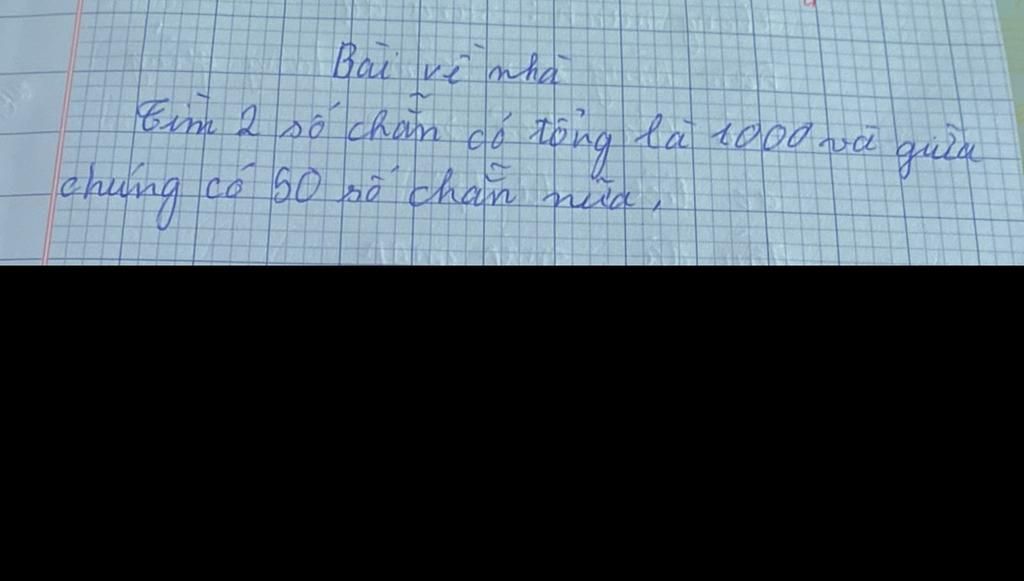 Bài về nhà
Tìm 2 số chẵn có tổng là 1000 và giữa
chúng có 50 số chẵn nữa.